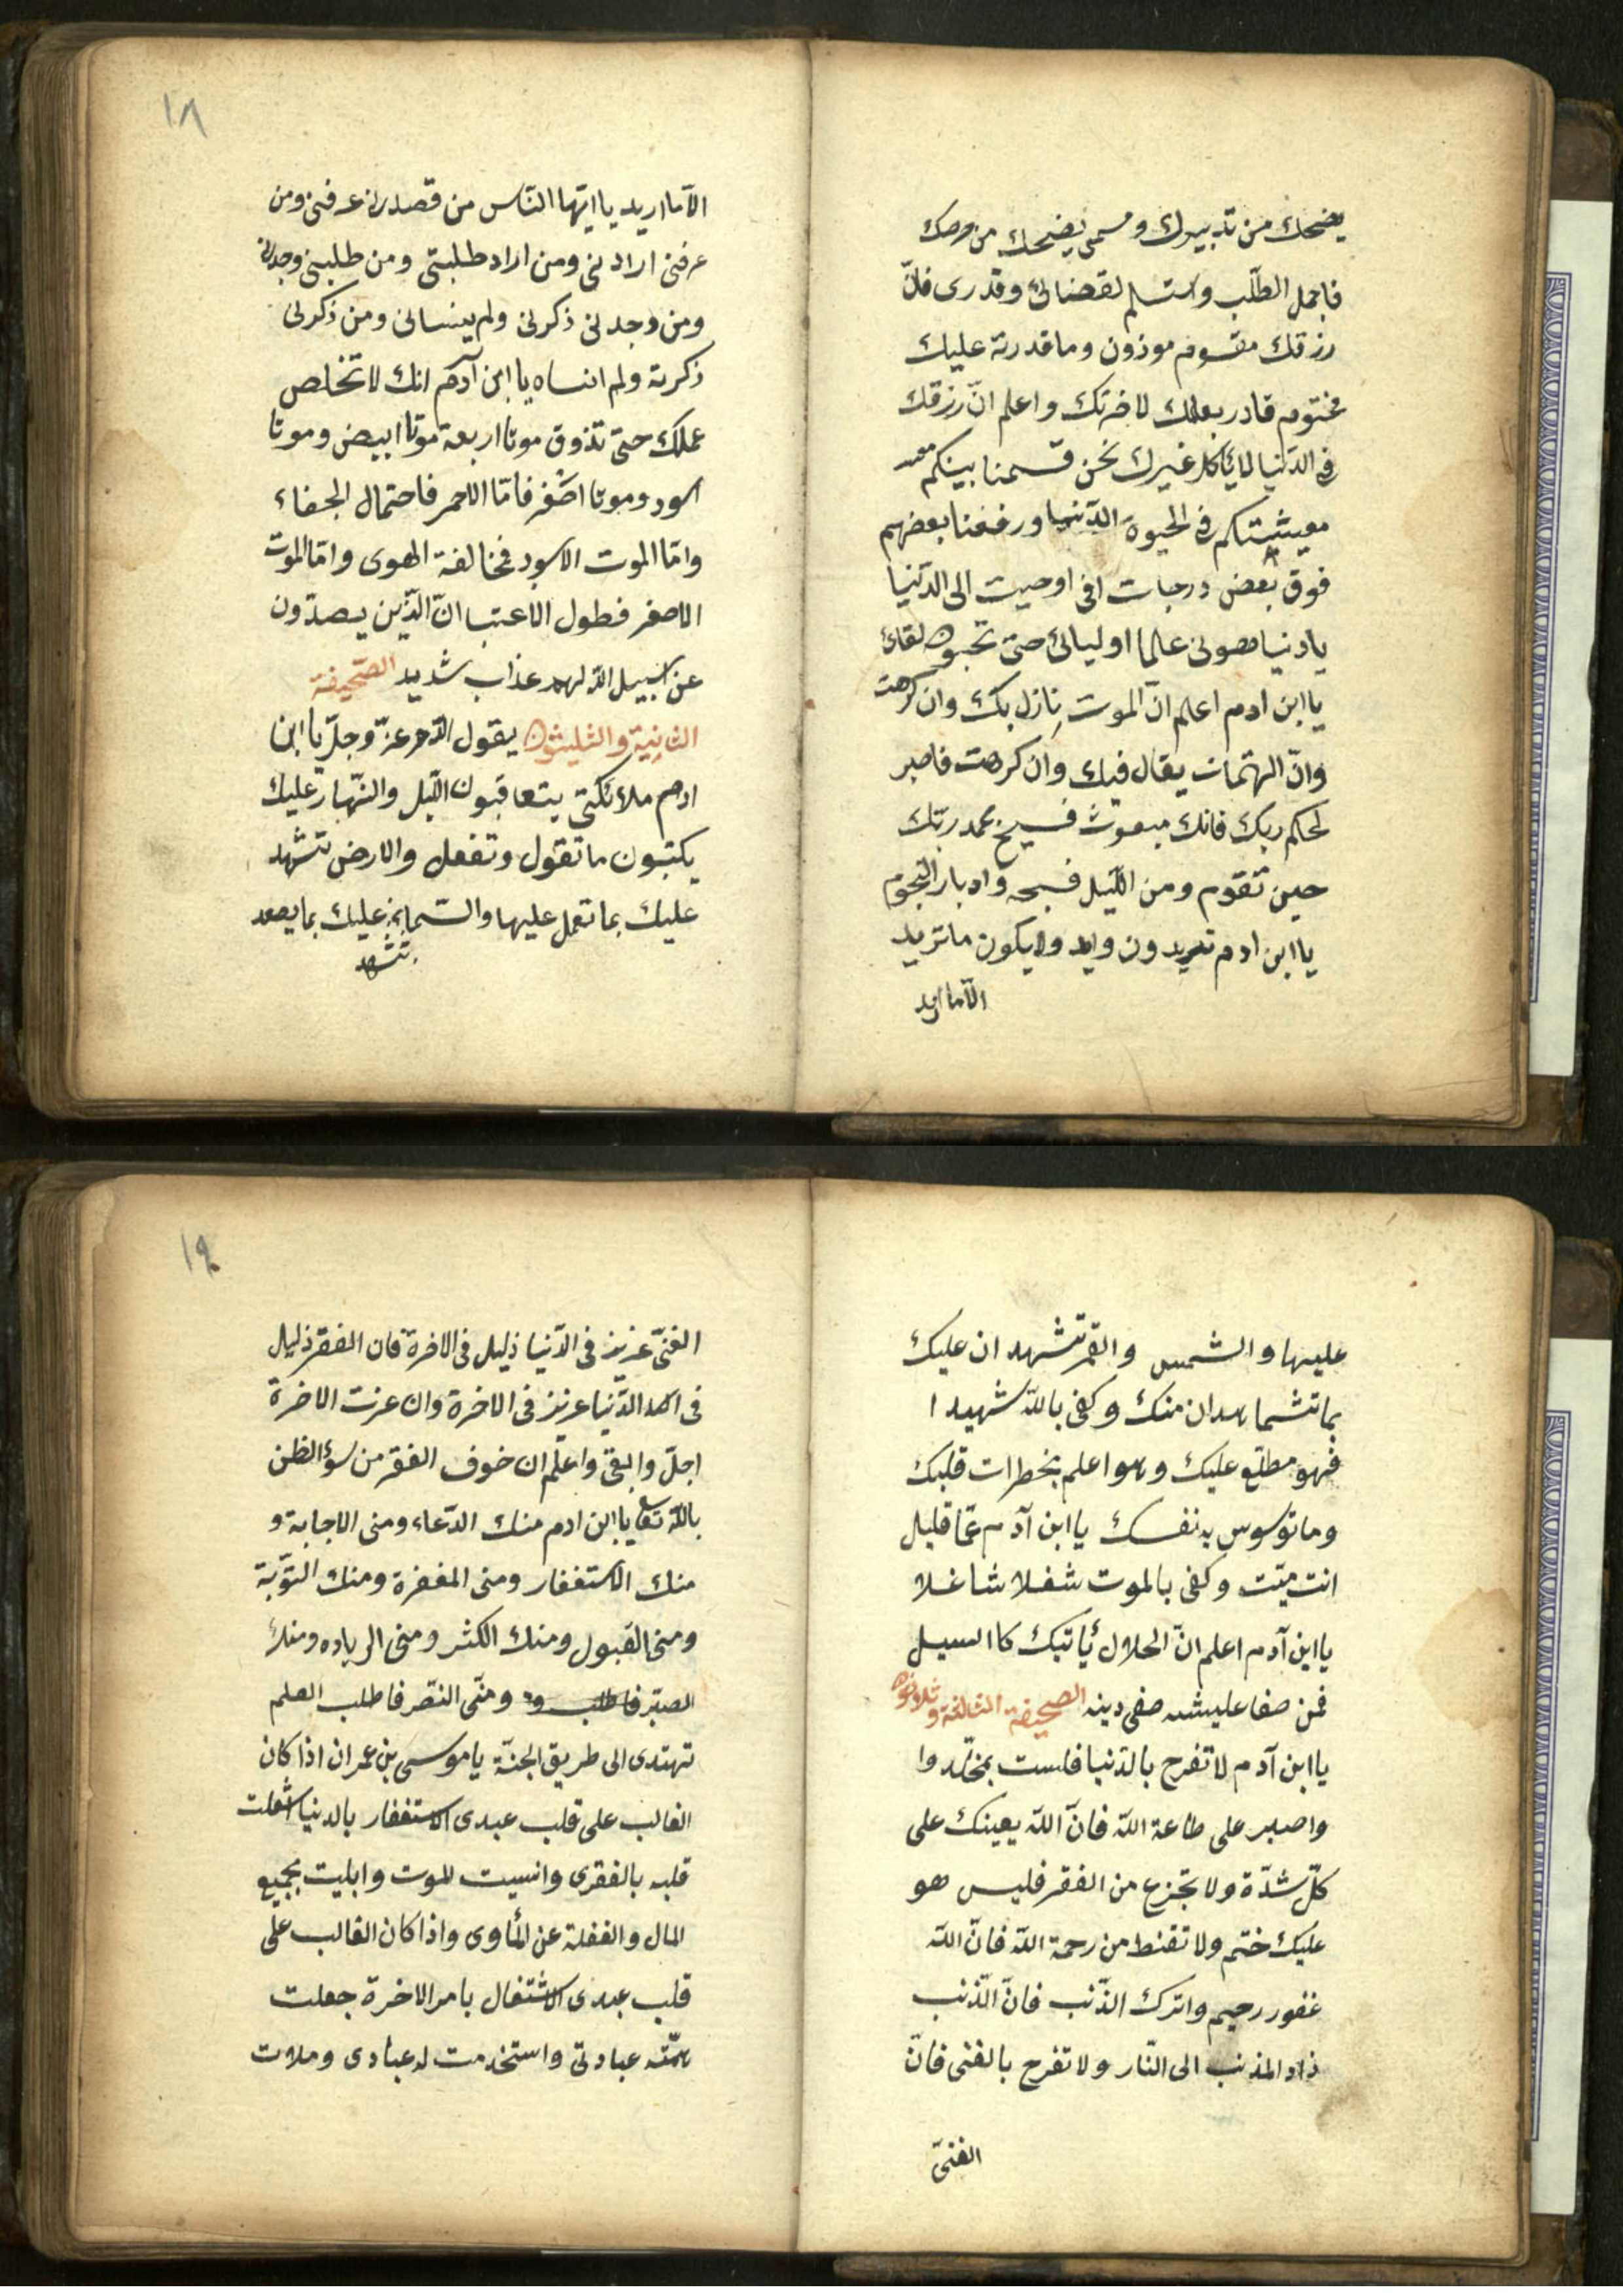 يضحك من تدبيرك وسمى يضحك من حرصك
فاجمل الطلب واستسلم لقضائى وقدرى فانّ
رزقك مقسوم موزون وما قدرته عليك
مختوم قادر بعملك لاخرتك واعلم انّ رزقك
فى الدّنيا لا يأكله غيرك نحن قسمنا بينكم
معيشتكم فى الحيوة الدّنيا ورفعنا بعضهم
فوق بعض درجات انى اوحيت الى الدّنيا
يا دنيا اوليائى حتى لقائى
يا ابن ادم اعلم انّ الموت نازل بك وان كرهت
وانّ يقال فيك وان كرهت فاصبر
لحكم ربك فانك مبعوث فسبح بحمد ربّك
حين تقوم ومن اللّيل فسبحه وادبار النّجوم
يا ابن ادم تريدون واريد ولا يكون ما تريد
الّا ما اريد
١٨
الّا ما اريد يا ايّها النّاس من قصدنى عرفنى ومن
عرفنى ارادنى ومن اراد طلبتى ومن طلبنى وجدنى
ومن وجدنى ذكرنى ولم ينسانى ومن ذكرنى
ذكرته ولم انساه يا ابن آدم انك لا تخلص
عملك حتى تذوق موتا اربعة موتا ابيض وموتا
اسود وموتا اصفر فامّا الاحمر فاحتمال الجفاء
وامّا الموت الاسود فمخالفة الهوى وامّا الموت
الاصفر فطول انّ الّذين يصدّون
عن سبيل الله لهم عذاب شديد الصّحيفة
الثانية والثليثون يقول الله عزّ وجلّ يا ابن
ادم ملائكتى يتعاقبون اللّيل والنّهار عليك
يكتبون ما تقول وتفعل والارض تشهد
عليك بما تعمل عليها والسّما عليك بما يصعد
تشهد
عليها والشمس والقمر تشهد ان عليك
بما منك وكفى بالله شهيدا
فهو مطلع عليك وهو اعلم بخطرات قلبك
وما توسوس به نفسك يا ابن آدم عمّا قليل
انت ميّت وكفى بالموت شغلا شاغلا
يا ابن آدم اعلم انّ الحلال يأتيك كاالسيل
فمن صفا عليشه صفى دينه الصحيفة الثالثة وثلاثون
يا ابن آدم لا تفرح بالدّنيا فلست بمخلّد وا
واصبر على طاعة الله فانّ الله يعينك على
كلّ شدّة ولا تجزع من الفقر فليس هو
عليك ختم ولا تقنط من رحمة الله فانّ الله
غفور رحيم واترك الذّنب فانّ الّذنب
زاد المذنب الى النّار ولا تفرح بالغنى فانّ
الغنىّ
١٩
الغنىّ عزيز فى الدّنيا ذليل فى الاخرة فان الفقر ذليل
فى اهل الدّنيا عزيز فى الاخرة وان عزت الاخرة
اجلّ وابقى واعلم ان خوف الفقر من سؤ الظن
بالله تعا يا ابن ادم منك الدّعاء ومنى الاجابة و
منك الاستغفار ومنى المغفرة ومنك التّوبة
ومنى القبول ومنك الكثر ومنى الزياده ومنك
الصبّر ومنّى النّصر فاطلب العلم
تهتدى الى طريق الجنّة يا موسى بن عمران اذا كان
الغالب على قلب عبدى الاستغفار بالدنيا شغلت
قلبه بالفقرى وانسيت للموت وابليت بجميع
المال والغفلة عن المأوى واذا كان الغالب على
قلب عبدى الاشتغال بامر الاخرة جعلت
همّته عبادتى واستخدمت له عبادى وملات